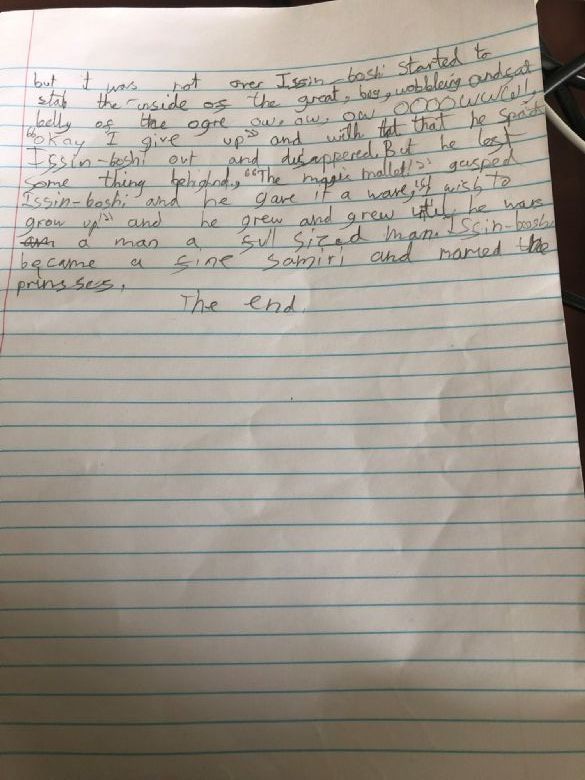 but it was not over Issin-boshi started to
stab the inside of the great, big, wobbleing and fat
belly of the ogre ow, ow, ow OOOOWWW!,
"okay I give up" and with that he spat
Issin-boshi out and disappered. But he left
some thing behighnd, "The magic mallet!" gasped
Issin-boshi and he gave it a wave, "I wish to
grow up" and he grew and grew until he was
a man a full sized man. Issin-boshi
became a fine samiri and maried the
prinsses.
The end.